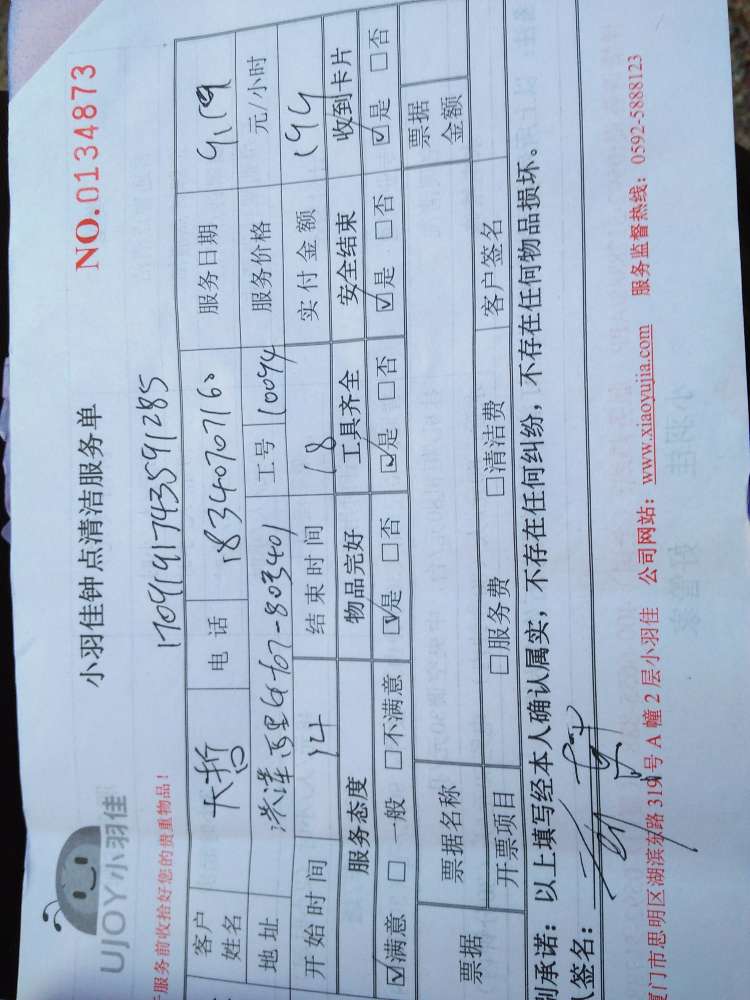 UJOY小羽佳
小羽佳钟点清洁服务单
NO.0134873
服务前收拾好您的贵重物品!
1709191743591285
客户姓名 大哲 电话 18340707160 服务日期 9.19
地址 工号 10094 服务价格 元/小时
开始时间 14 结束时间 18 实付金额 144
服务态度 物品完好 工具齐全 安全结束 收到卡片
☑满意 □一般 □不满意 ☑是 □否 ☑是 □否 ☑是 □否 ☑是 □否
票据 票据名称 票据金额
开票项目 □服务费 □清洁费 客户签名
别承诺:以上填写经本人确认属实,不存在任何纠纷,不存在任何物品损坏。
签名:
厦门市思明区湖滨东路319号A幢2层小羽佳 公司网站:www.xiaoyujia.com 服务监督热线:0592-5888123